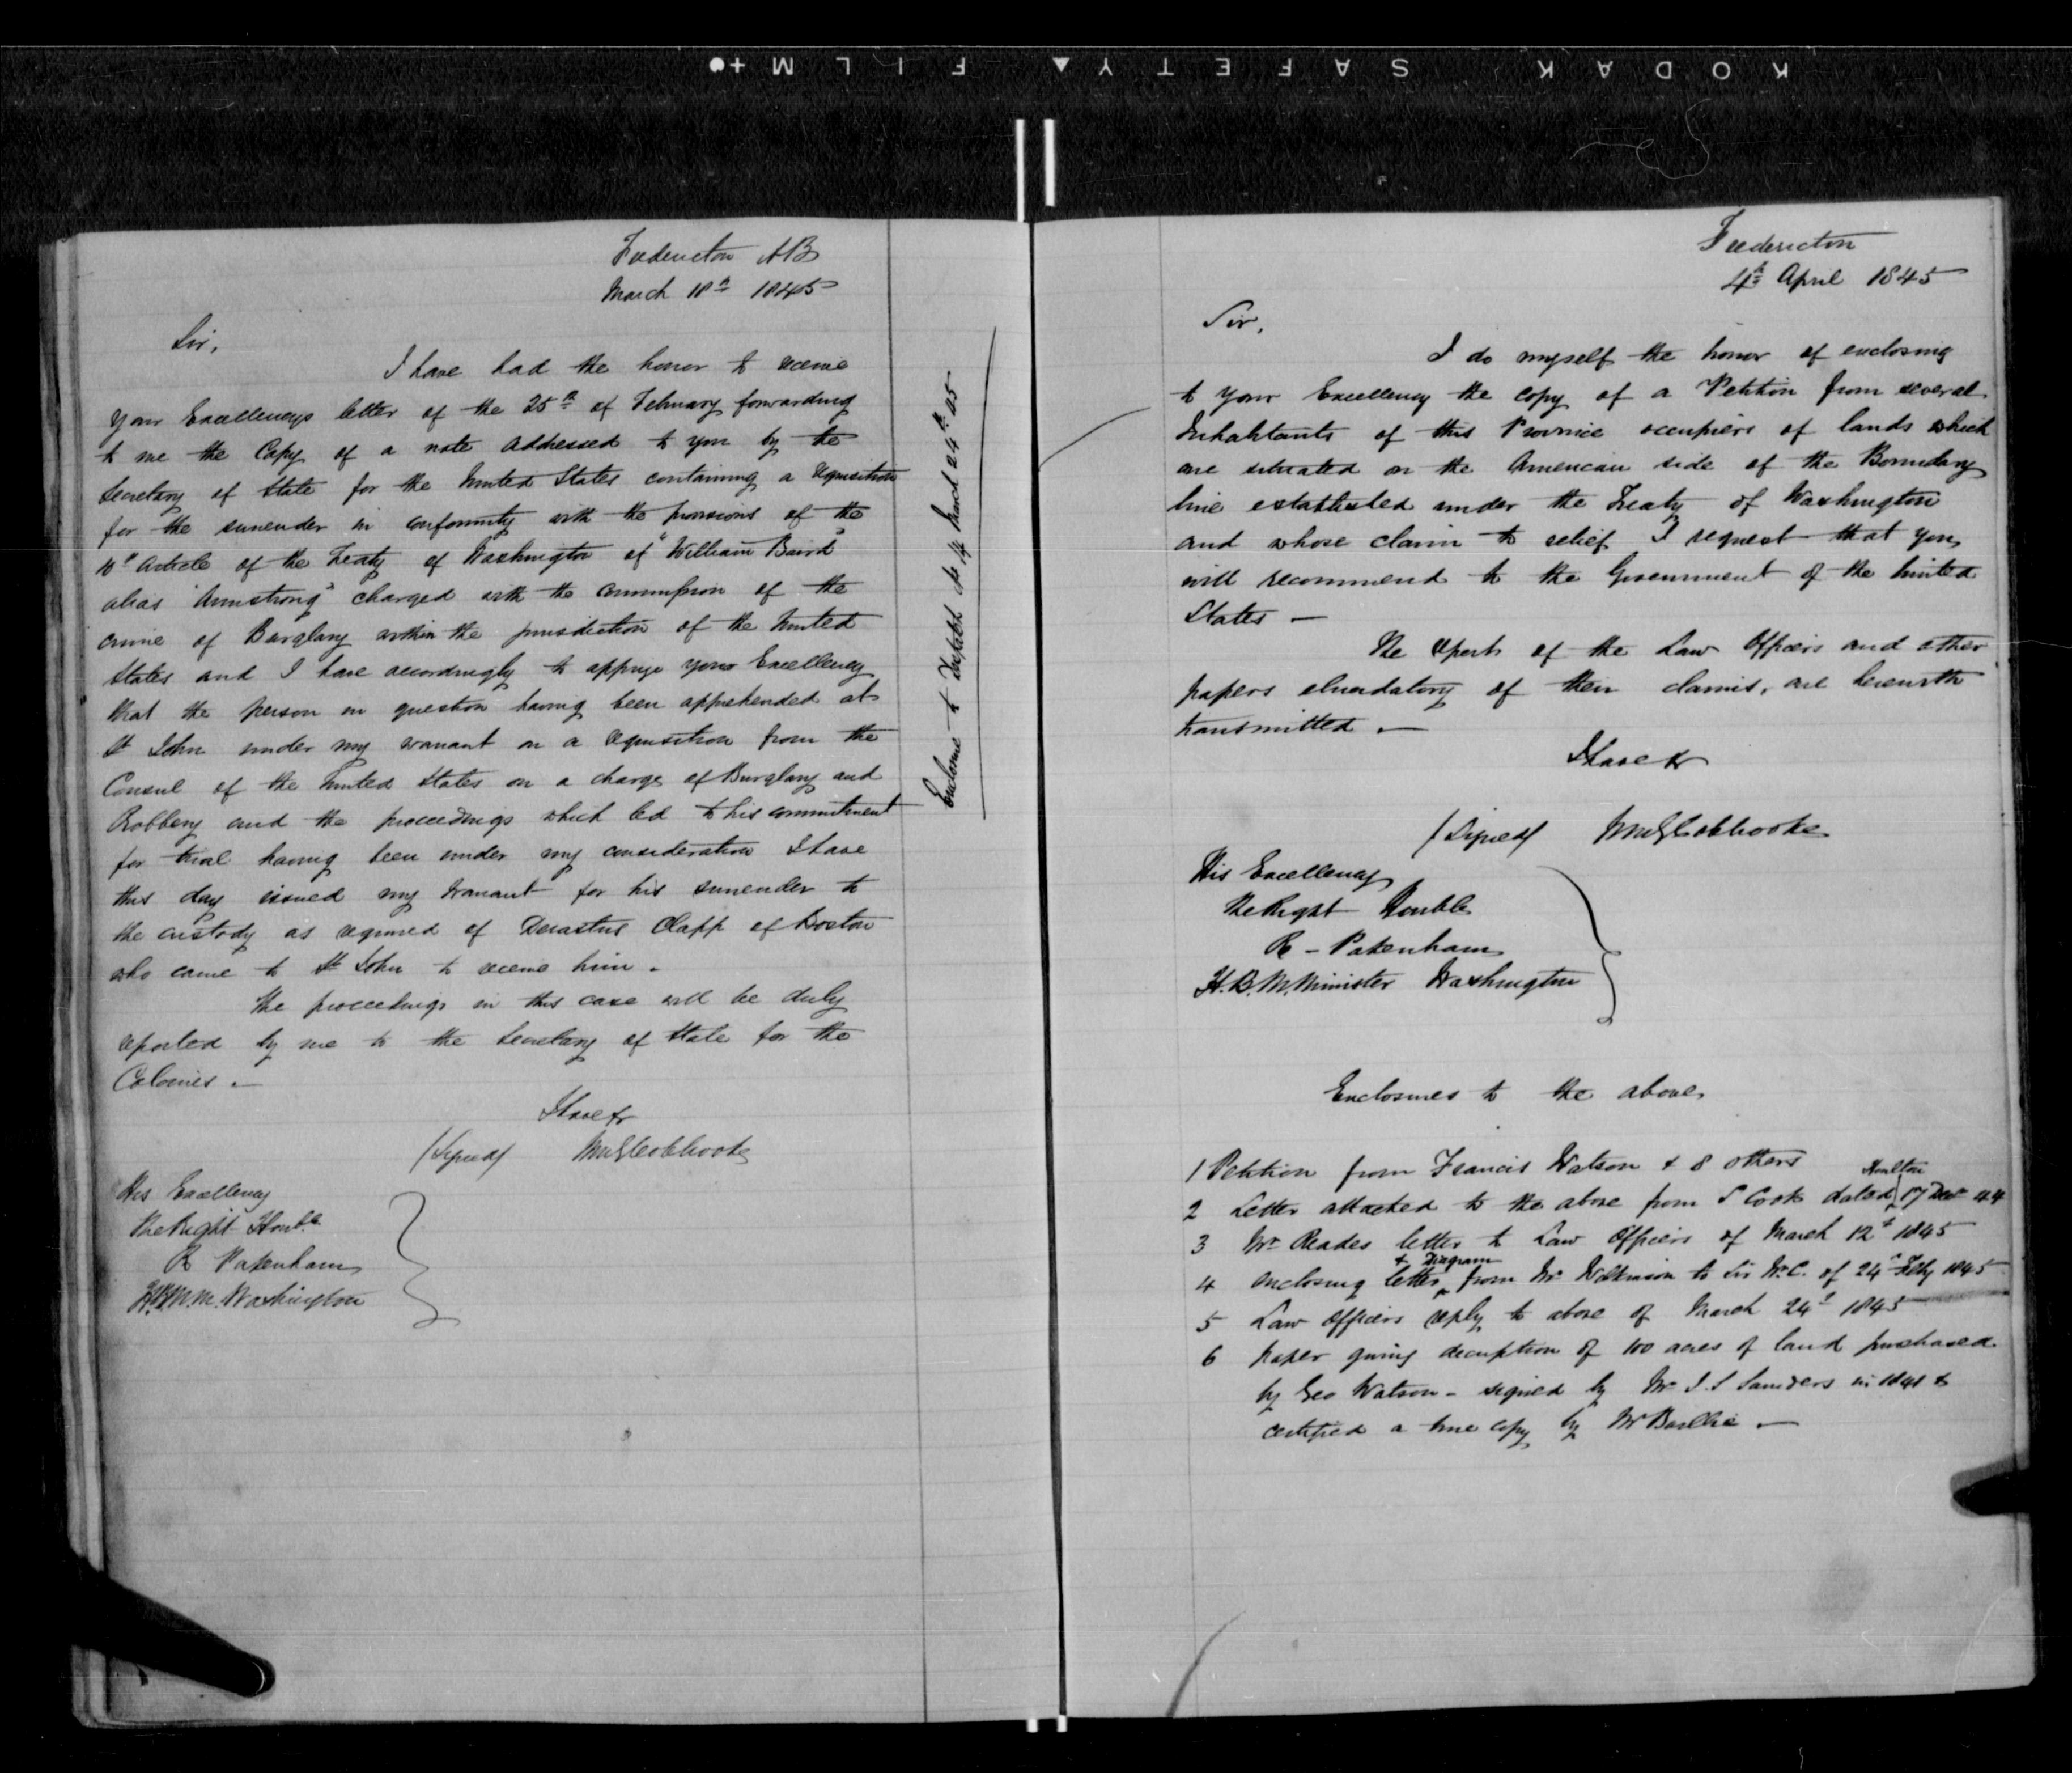 KODAK SAFETY FILM
Fredericton NB
March 18th 1845
Sir,
I have had the honor to receive
your Excellencys letter of the 25th of February forwarding
to me the Copy of a note addressed to you by the
Secretary of State for the United States containing a requisition
for the surrender in conformity with the provisions of the
10th Article of the Treaty of Washington of "William Baird"
alias "Armstrong" charged with the commission of the
crime of Burglary within the jurisdiction of the United
States and I have accordingly to apprize your Excellency
that the person in question having been apprehended at
St John under my warrant on a requisition from the
Consul of the United States on a charge of Burglary and
Robbery and the proceedings which led to his commitment
for trial having been under my consideration I have
this day issued my Warrant for his surrender to
the custody as required of Derastus Clapp of Boston
who came to St John to receive him.
The proceedings in this case will be duly
reported by me to the Secretary of State for the
Colonies.
I have &
(Signed) WMGColebrooke
His Excellency
The Right Honble
R Pakenham
H.B.M.M. Washington
Enclosure to Dispatch No 14 March 24th 45
Fredericton
4th April 1845
Sir,
I do myself the honor of enclosing
to your Excellency the copy of a Petition from several
Inhabitants of this Province occupiers of lands which
are situated on the American side of the Boundary
line established under the Treaty of Washington
and whose claim to relief I request that you
will recommend to the Government of the United
States —
The report of the Law Officers and other
papers elucidatory of their claims, are herewith
transmitted. —
I have &
(Signed) WMGColebrooke
His Excellency
The Right Honble
R - Pakenham
H.B.M. Minister Washington
Enclosures to the above
1 Petition from Francis Watson & 8 others
2 Letter attached to the above from S Cook dated Houlton 17 Decr 44
3 Mr Reades letter to Law Officers of March 12th 1845
4 enclosing letter & Diagram from Mr Wilkinson to Sir W.C. of 24th Feby 1845
5 Law Officers reply to above of March 24th 1845
6 paper giving decription of 100 acres of land purchased
by Geo Watson - signed by Mr J.S Saunders in 1841 &
certified a true copy by Mr Baillie. —